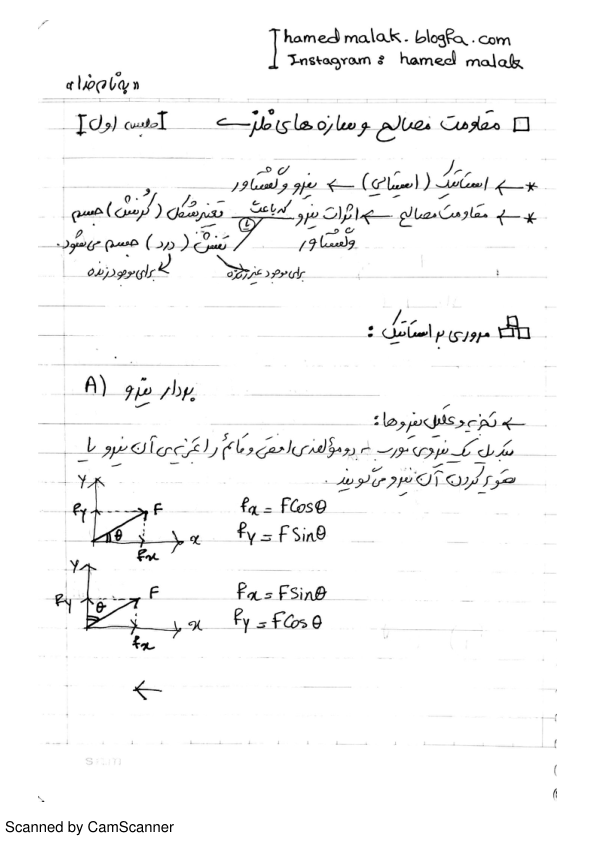 hamedmalak.blogfa.com
Instagram: hamed malak
«به نام خدا»
مقاومت مصالح و سازه های فلزی [جلسه اول]
* ← استاتیک (ایستایی) ← نیرو و گشتاور
* ← مقاومت مصالح ← اثرات نیرو که باعث تغییر شکل (کُرنش) جسم
و گشتاور یا تنش (درد) جسم می شود.
برای موجود غیر زنده برای موجود زنده
مروری بر استاتیک:
A) بردار نیرو
← تجزیه و تحلیل نیروها:
تبدیل یک نیروی مورب به دو مؤلفه ی افقی و قائم را تجزیه ی آن نیرو یا
تصویر کردن آن نیرو می گویند.
y
Fy F fx = F Cosθ
θ x fy = F Sinθ
fx
y
Fy θ F fx = F Sinθ
x fy = F Cosθ
fx
←
Scanned by CamScanner